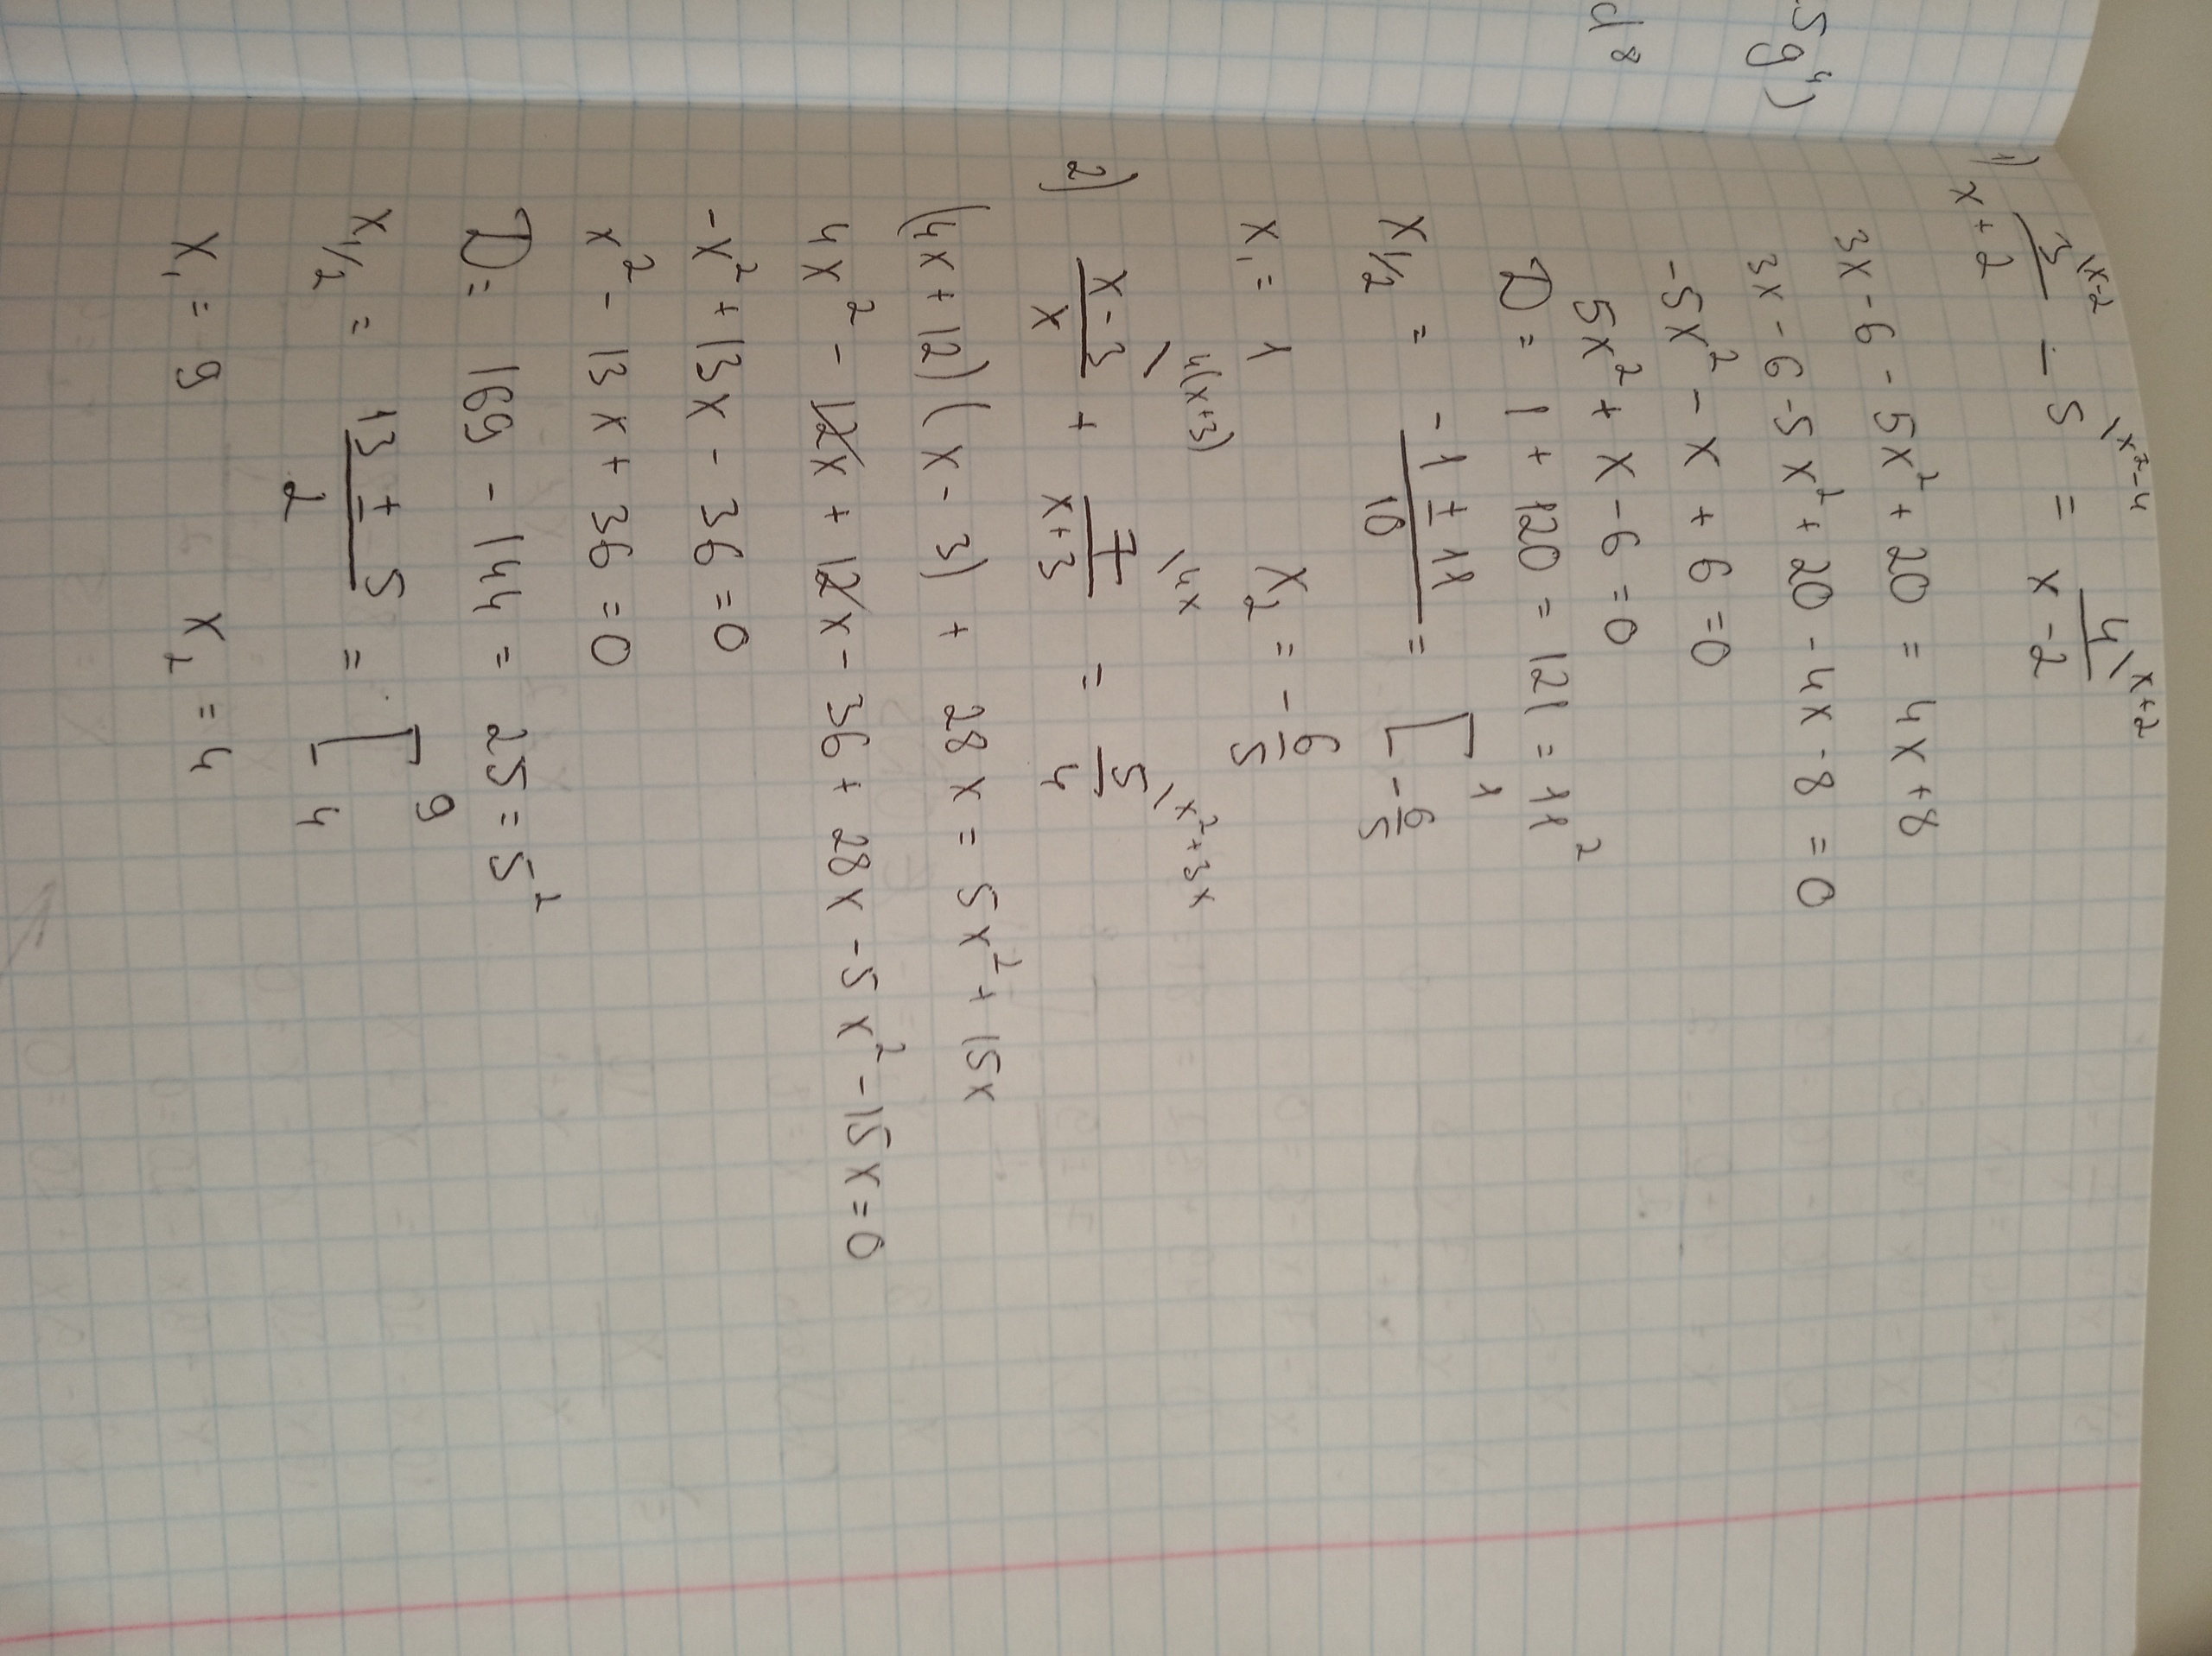 5g⁴)
d⁸
1) 3\x-2/x+2 - 5\x²-4 = 4\x+2/x-2
3x - 6 - 5x² + 20 = 4x + 8
3x - 6 - 5x² + 20 - 4x - 8 = 0
-5x² - x + 6 = 0
5x² + x - 6 = 0
D = 1 + 120 = 121 = 11²
x₁/₂ = -1 ± 11/10 = [ 1 -6/5
x₁ = 1 x₂ = -6/5
2) x-3\4(x+3)/x + 7\4x/x+3 = 5\x²+3x/4
(4x + 12)(x - 3) + 28x = 5x² + 15x
4x² - 12x + 12x - 36 + 28x - 5x² - 15x = 0
-x² + 13x - 36 = 0
x² - 13x + 36 = 0
D = 169 - 144 = 25 = 5²
x₁/₂ = 13 ± 5/2 = [ 9 4
x₁ = 9 x₂ = 4